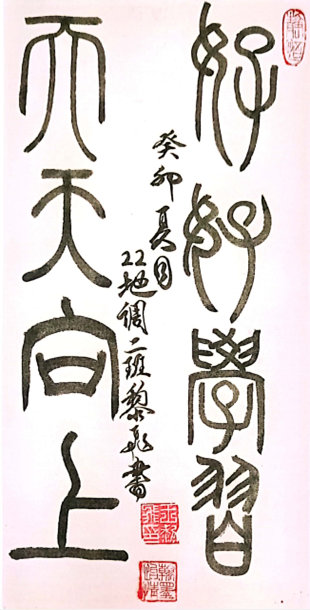 好好學習
天天向上
癸卯夏月
22地調二班黎飛書